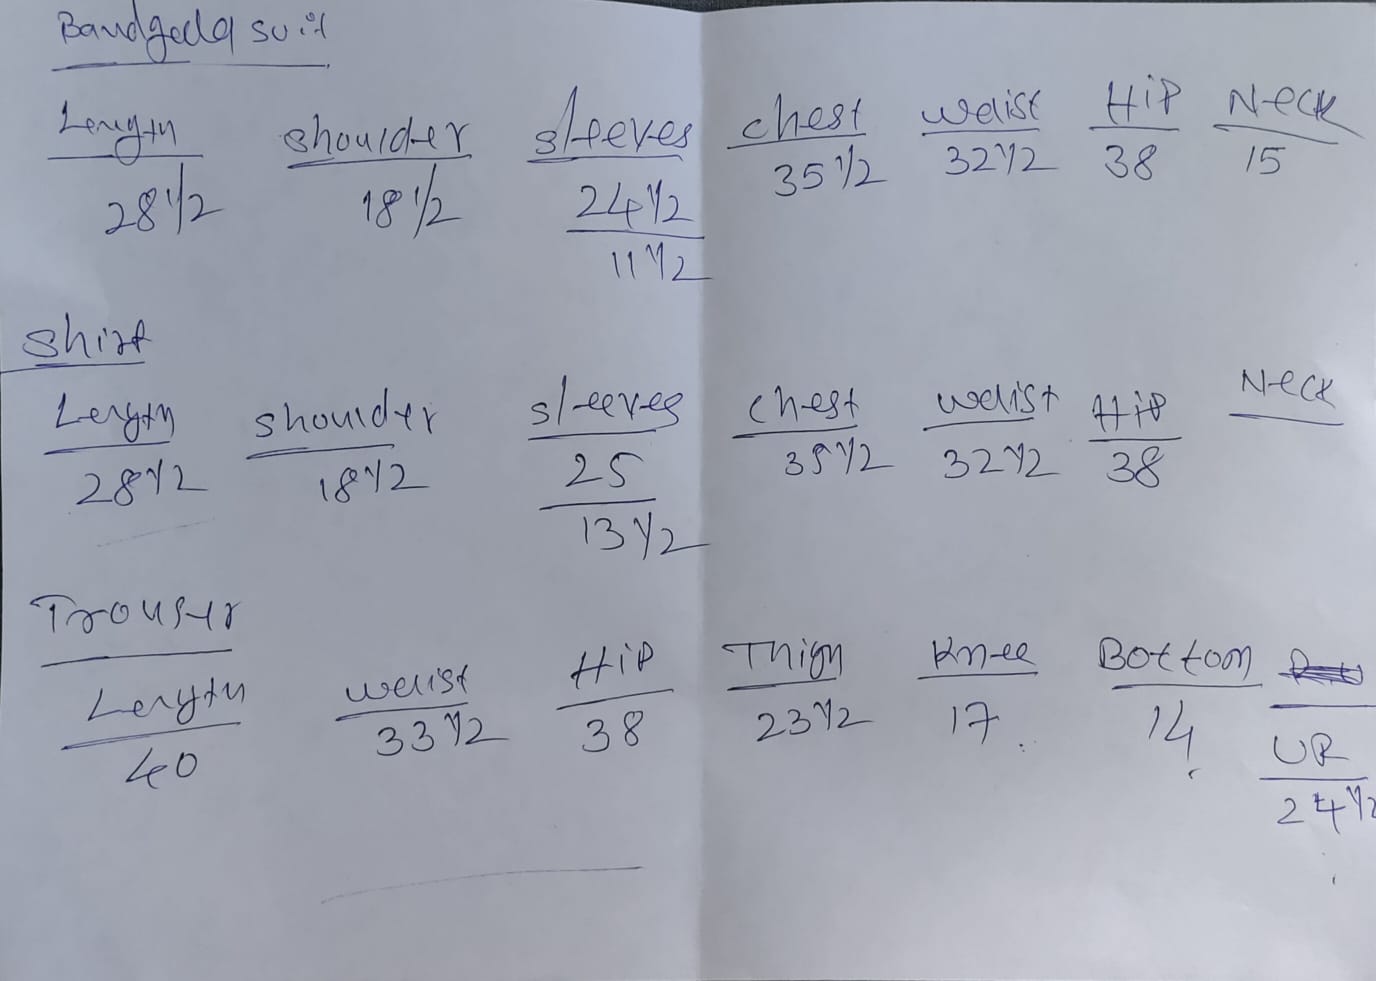 Bandgala suit
Length shoulder sleeves chest waist Hip Neck
28 1/2 18 1/2 24 1/2 35 1/2 32 1/2 38 15
11 1/2
Shirt
Length shoulder sleeves chest waist Hip Neck
28 1/2 18 1/2 25 35 1/2 32 1/2 38
13 1/2
Trouser
Length waist Hip Thigh Knee Bottom
40 33 1/2 38 23 1/2 17 14
UR
24 1/2